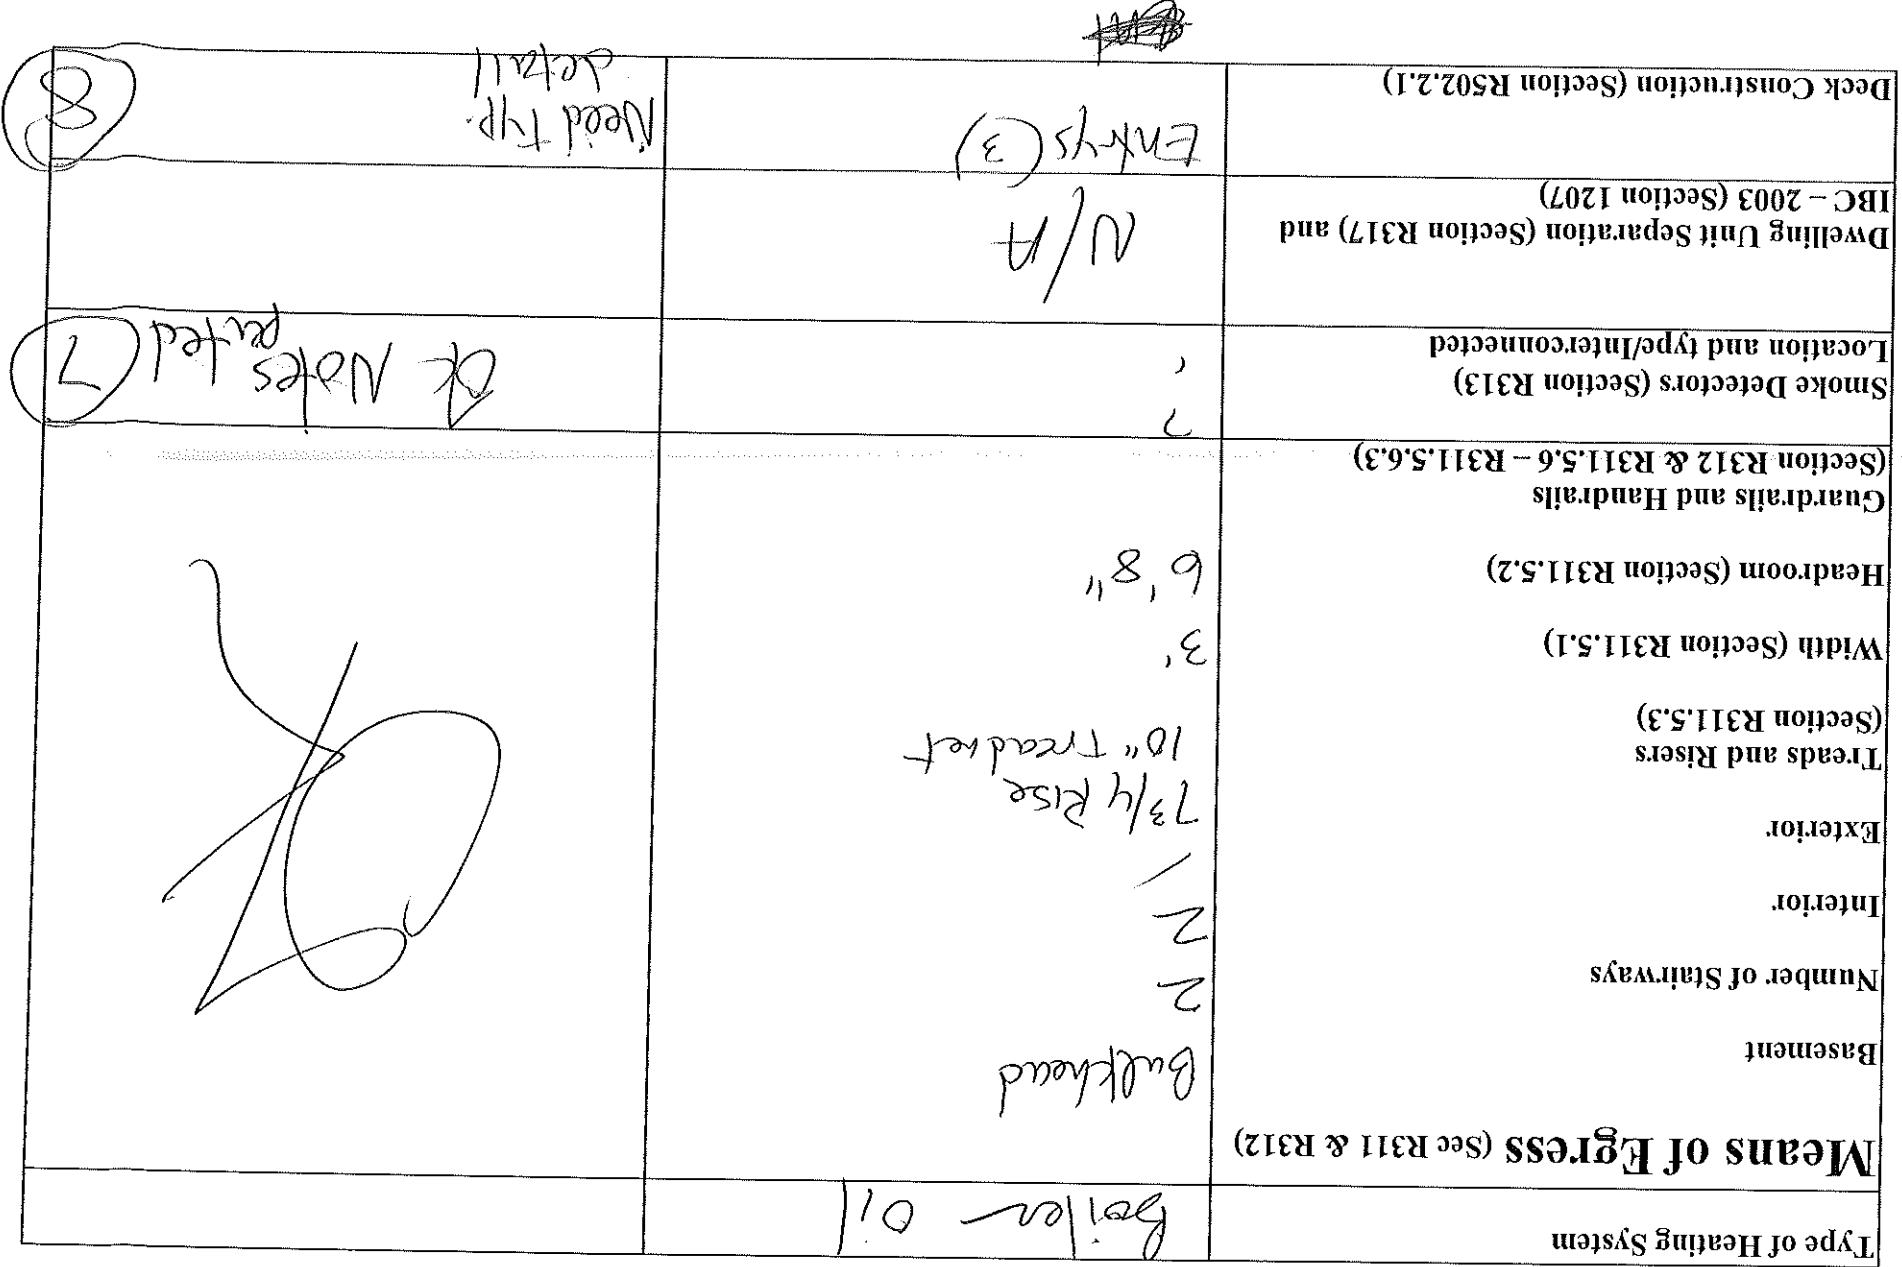 Type of Heating System
Boiler - Oil
Means of Egress (Sec R311 & R312)
Basement
Bulkhead
Number of Stairways
2
Interior
2
Exterior
1
Treads and Risers
(Section R311.5.3)
7 3/4 Rise
10" Tread net
Width (Section R311.5.1)
3'
Headroom (Section R311.5.2)
6' 8"
OK
Guardrails and Handrails
(Section R312 & R311.5.6 – R311.5.6.3)
Smoke Detectors (Section R313)
Location and type/Interconnected
?
OK Notes
7
Dwelling Unit Separation (Section R317) and
IBC – 2003 (Section 1207)
N/A
Deck Construction (Section R502.2.1)
Entrys (3)
Need typ.
detail
8